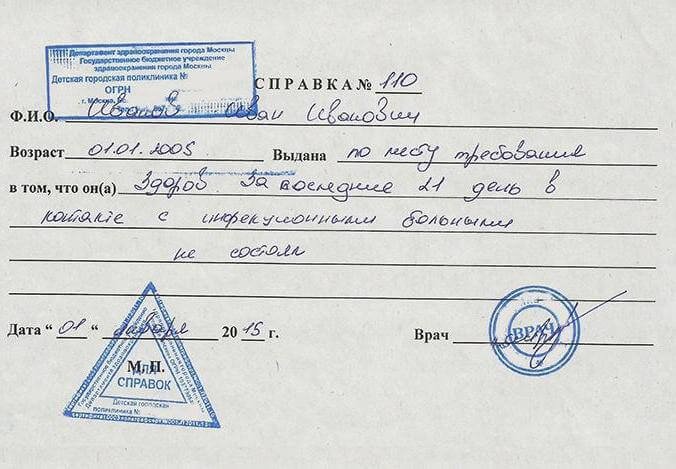 Департамент здравоохранения города Москвы
Государственное бюджетное учреждение
здравоохранения города Москвы
Детская городская поликлиника №
ОГРН
г. Москва,
СПРАВКА № 110
Ф.И.О. Иванов Иван Иванович
Возраст 01.01.2005 Выдана по месту требования
в том, что он(а) Здоров. За последние 21 день в
контакте с инфекционными больными
не состоял
Дата “ 01 “ января 20 15 г.
Врач
ВРАЧ
М. П.
ДЛЯ
СПРАВОК
Детская городская
поликлиника №